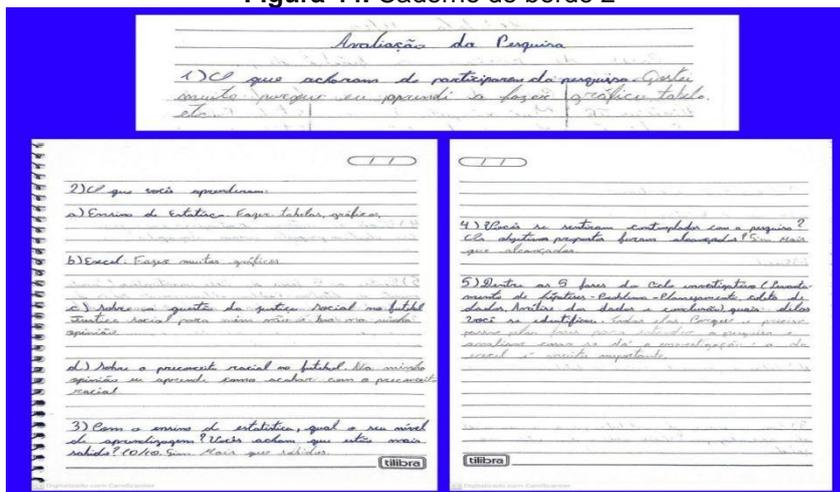 Figura 14. Caderno de bordo 2
Avaliação da Pesquisa
1) O que acharam de participarem da pesquisa. Gostei
muito porque eu aprendi a fazer gráfico, tabela.
etc.
2) O que vocês aprenderam:
a) Ensino de Estatísca. Fazer tabelas, gráficos,
b) Excel. Fazer muitos gráficos
c) Sobre a questão da justiça social no futebol
Justiça social para mim não é boa na minha
opinião
d) Sobre o preconceito racial no futebol. Na minha
opinião eu aprende como acabar com o preconceito
racial
3) Com o ensino de estatística, qual o seu nível
de aprendizagem? Vocês acham que estão mais
sabido? 10/10. Sim Mais que sabidos.
tilibra
4) Vocês se sentiram contemplados com a pesquisa?
Os objetivos propostos foram alcançados? Sim Mais
que alcançados.
5) Dentre as 5 fases do Ciclo investigativo (Levanta-
mento de hipóteses - Problema - Planejamento coleta de
dados, Análise dos dados e conclusão) quais delas
você se identificou. Todas elas. Porque é preciso
passar pelas fases para entender a pesquisa e
analisar como se dá a investigação e a do
excel é muito importante.
tilibra
Digitalizado com CamScanner
Digitalizado com CamScanner